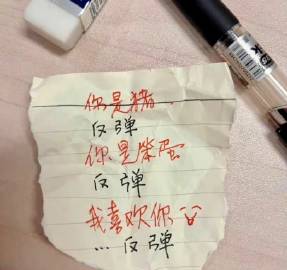 你是猪
反弹
你是柴蛋
反弹
我喜欢你
...反弹